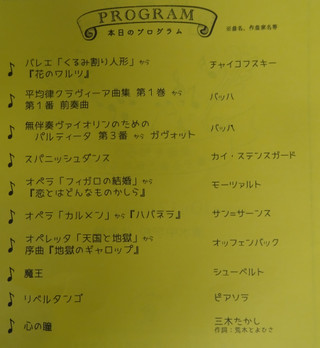 PROGRAM
本日のプログラム
バレエ「くるみ割り人形」から
『花のワルツ』 チャイコフスキー
平均律クラヴィーア曲集 第1巻 から
第1番 前奏曲 バッハ
無伴奏ヴァイオリンのための
パルティータ 第3番 から ガヴォット バッハ
スパニッシュダンス カイ・ステンスガード
オペラ「フィガロの結婚」から
『恋とはどんなものかしら』 モーツァルト
オペラ「カルメン」から『ハバネラ』 サン=サーンス
オペレッタ「天国と地獄」から
序曲『地獄のギャロップ』 オッフェンバック
魔王 シューベルト
リベルタンゴ ピアソラ
心の瞳 三木たかし
作詞:荒木とよひさ